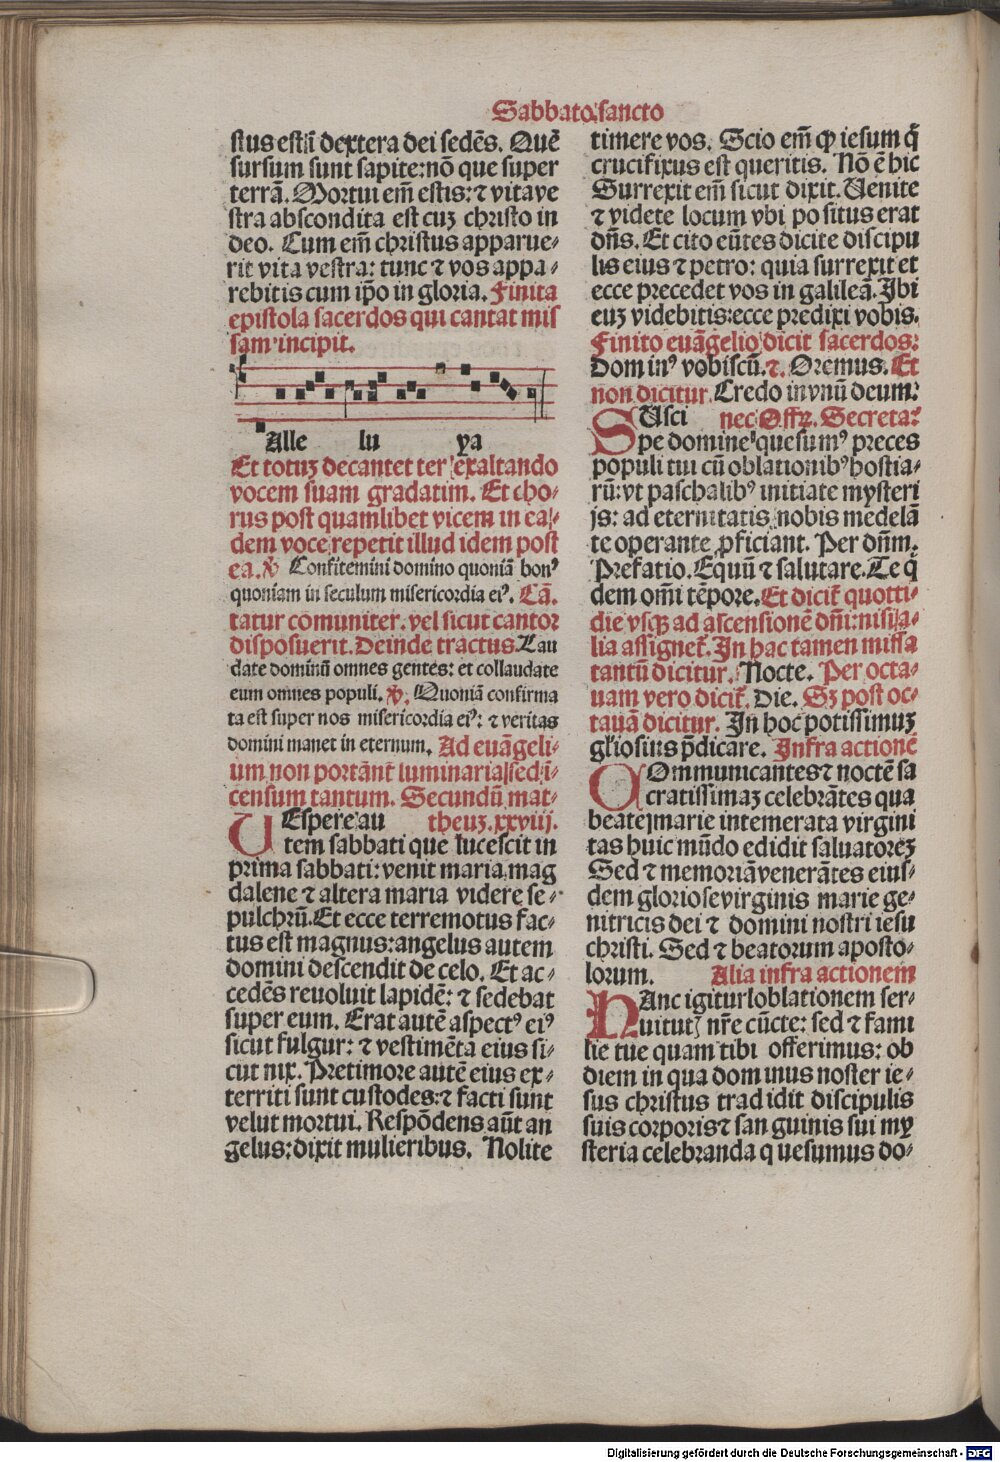 Sabbato sancto
stus est ī dextera dei sedēs. Quē
sursum sunt sapite: nō que super
terrā. Mortui em̄ estis: ⁊ vita ve
stra abscondita est cuꝫ christo in
deo. Cum em̄ christus apparue⸗
rit vita vestra: tunc ⁊ vos appa⸗
rebitis cum ip̄o in gloria. Finita
epistola sacerdos qui cantat mis
sam incipit.
Alle lu ya
Et totuꝫ decantet ter exaltando
vocem suam gradatim. Et cho⸗
rus post quamlibet vicem in ea⸗
dem voce repetit illud idem post
ea. ℣ Confitemini domino quoniā bonꝰ
quoniam in seculum misericordia eiꝰ. Cā.
tatur cōmuniter. vel sicut cantor
disposuerit. Deinde tractus. Lau
date dominū omnes gentes: et collaudate
eum omnes populi. ℣. Quoniā confirma
ta est super nos misericordia eiꝰ: ⁊ veritas
domini manet in eternum. Ad euāgeli⸗
um non portānt luminaria sed ī⸗
censum tantum. Secundū mat⸗
theuꝫ. xxviij.
VEspere au
tem sabbati que lucescit in
prima sabbati: venit maria mag
dalene ⁊ altera maria videre se⸗
pulchrū. Et ecce terremotus fac⸗
tus est magnus: angelus autem
domini descendit de celo. Et ac⸗
cedēs reuoluit lapidē: ⁊ sedebat
super eum. Erat autē aspectꝰ eiꝰ
sicut fulgur: ⁊ vestimēta eius si⸗
cut nix. Pre timore autē eius ex⸗
territi sunt custodes: ⁊ facti sunt
velut mortui. Respōdens aūt an
gelus: dixit mulieribus. Nolite
timere vos. Scio em̄ ꝙ iesum q̄
crucifixus est queritis. Nō ē hic
Surrexit em̄ sicut dixit. Uenite
⁊ videte locum vbi positus erat
dn̄s. Et cito eūtes dicite discipu
lis eius ⁊ petro: quia surrexit et
ecce precedet vos in galileā. Ibi
euꝫ videbitis: ecce predixi vobis.
Finito euāgelio dicit sacerdos:
Dominꝰ vobiscū. ⁊. Oremus. Et
non dicitur. Credo in vnū deum:
nec Offꝝ. Secreta:
SUsci
pe domine quesumꝰ preces
populi tui cū oblationibꝰ hostia⸗
rū: vt paschalibꝰ initiate mysteri
js: ad eternitatis nobis medelā
te operante ꝓficiant. Per dn̄m.
Prefatio. Equū ⁊ salutare. Te q̄
dem om̄i tēpore. Et dicit̄ quotti⸗
die vsqꝫ ad ascensionē dn̄i: nisi a⸗
lia assignet̄. In hac tamen missa
tantū dicitur. Nocte. Per octa⸗
uam vero dicit̄. Die. Sꝫ post oc⸗
tauā dicitur. In hoc potissimuꝫ
gl̄iosius p̄dicare. Infra actionē
COmmunicantes ⁊ noctē sa
cratissimaꝫ celebrātes qua
beate marie intemerata virgini
tas huic mūdo edidit saluatoreꝫ
Sed ⁊ memoriā venerātes eius⸗
dem gloriose virginis marie ge⸗
nitricis dei ⁊ domini nostri iesu
christi. Sed ⁊ beatorum aposto⸗
lorum. Alia infra actionem
HAnc igitur oblationem ser⸗
uitutꝭ nr̄e cūcte: sed ⁊ fami
lie tue quam tibi offerimus: ob
diem in qua dominus noster ie⸗
sus christus tradidit discipulis
suis corporis ⁊ sanguinis sui my
steria celebranda quesumus do⸗
Digitalisierung gefördert durch die Deutsche Forschungsgemeinschaft - DFG